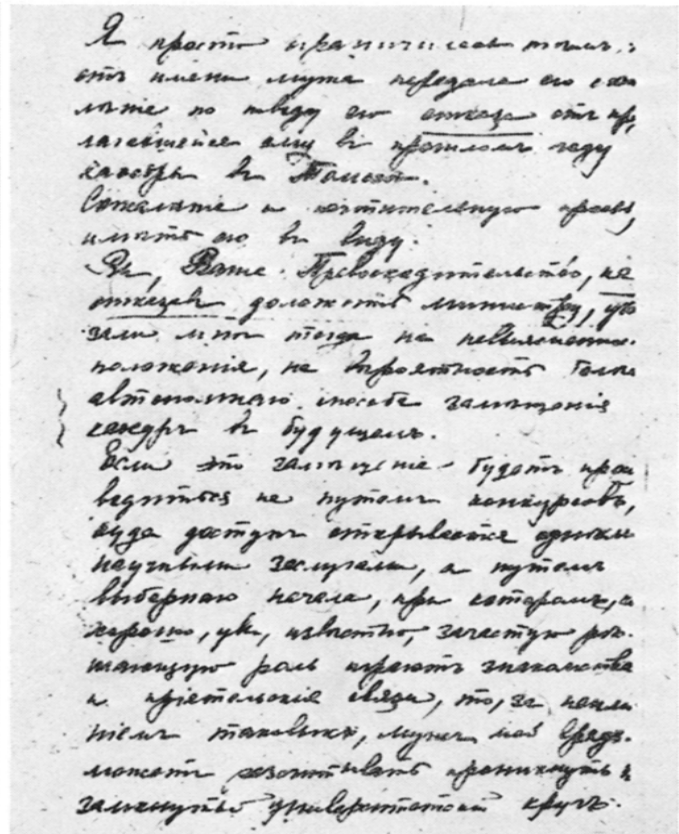 Я просто ограничилась тѣмъ, ч
отъ имени мужа передала его сож
лѣніе по поводу его отказа отъ пр
лагавшейся ему въ прошломъ году
каѳедры въ Томскѣ.
Сожалѣніе и почтительную просьб
имѣть его въ виду.
Вы, Ваше Превосходительство, не
отказавъ доложить министру, ука
зали мнѣ тогда на невыясненнос
положенія, на вѣроятность болѣе
автономнаго способа замѣщенія
каѳедръ въ будущемъ.
Если это замѣщеніе будетъ прои
водиться не путемъ конкурсовъ,
куда доступъ открывается одними
научными заслугами, а путемъ
выборнаго начала, при которомъ, к
хорошо, увы, извѣстно, зачастую рѣ
шающую роль играютъ знакомства
и пріятельскія связи, то, за неимѣ
ніемъ таковыхъ, мужъ мой врядъ
можетъ разсчитывать проникнуть в
замкнутый университетскій кругъ.